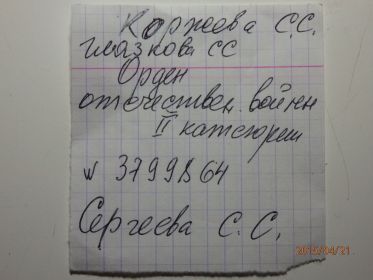 Коржева С.С.
глазкова СС
Орден
отечествен. войны
II категории
N 3799864
Сергеева С.С.